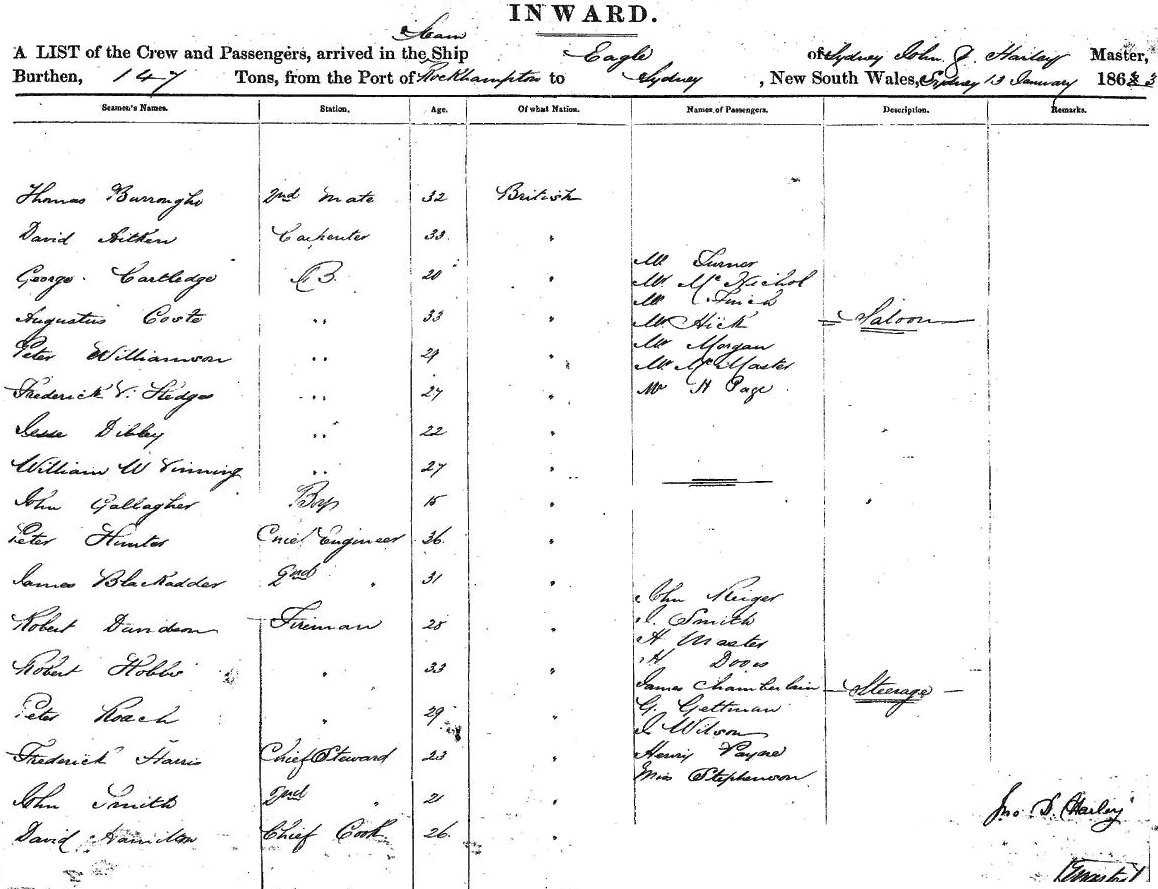 INWARD.
Steam
A LIST of the Crew and Passengers, arrived in the Ship Eagle of Sydney John Harley Master,
Burthen, 147 Tons, from the Port of Rockhampton to Sydney, New South Wales, Sydney 13 January 1863
Seamen's Names. Station. Age. Of what Nation. Names of Passengers. Description. Remarks.
Thomas Burroughs 2nd Mate 32 British
David Aitken Carpenter 33 "
Mr Turner
George Cartledge AB 20 "
Mr McNichol
Mr Finch
Augustus Coste " 33 "
Mr Hick Saloon
Mr Morgan
Peter Williamson " 29 "
Mr McMaster
Frederick V. Hedges " 27 "
Mr H Page
Jesse Dibley " 22 "
William W Vinning " 27 "
John Gallagher Boy 15 "
Peter Hunter Chief Engineer 36 "
James Blackadder 2nd " 31 "
John
Robert Davidson Fireman 28 "
J. Smith
H Master
Robert Hobbs " 33 "
H
James Chamberlain Steerage
Peter Roach " 29 "
G. Gettman
J Wilson
Frederick Harris Chief Steward 23 "
Henry Payne
Miss Stephenson
John Smith 2nd " 21 "
Jno Harley
David Hamilton Chief Cook 26 "
Master